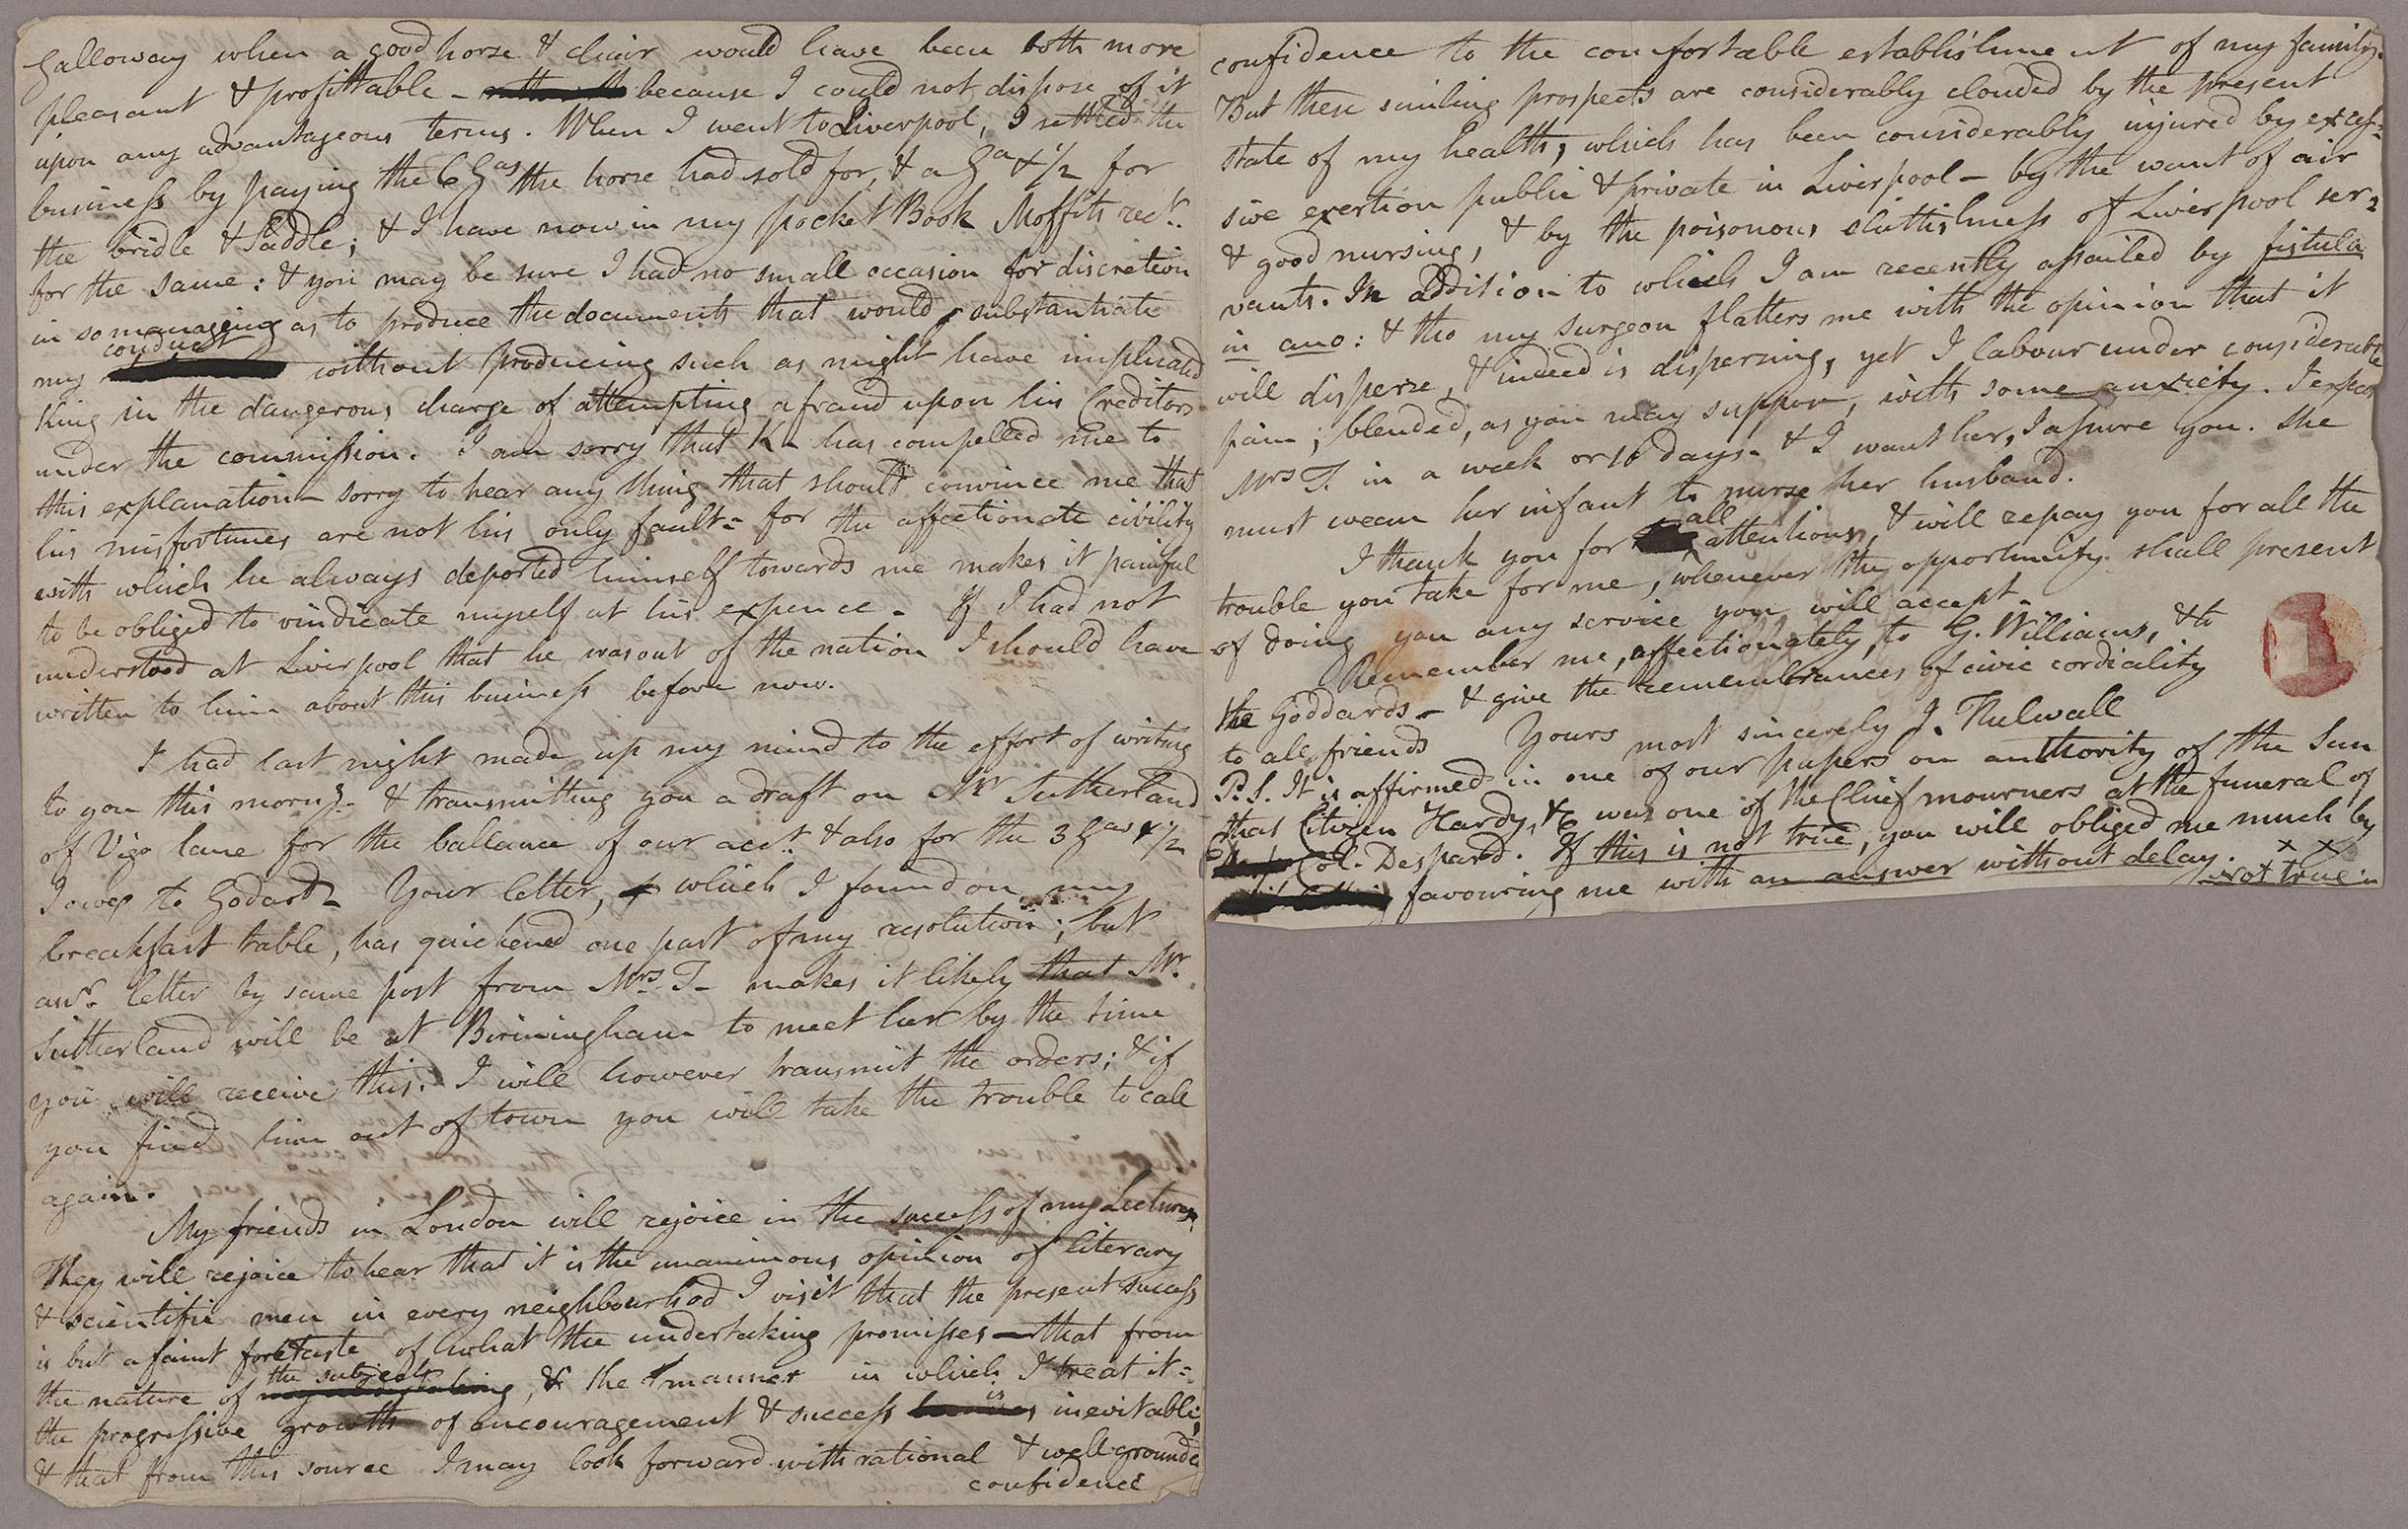 Galloway when a good horse & chair would have been both more
pleasant & profittable - because I could not dispose of it
upon any advantageous terms. When I went to Liverpool, I settled the
business by paying the 6 Gas the horse had sold for, & a Ga & ½ for
the bridle & Saddle; & I have now in my pocket Book Moffits rect.
for the same: & you may be sure I had no small occasion for discretion
in so managing as to produce the documents that would substantiate
my conduct without producing such as might have implicated
King in the dangerous charge of attempting a fraud upon his Creditors
under the commission. I am sorry that K- has compelled me to
this explanation - sorry to hear any thing that should convince me that
his misfortunes are not his only fault - for the affectionate civility
with which he always deported himself towards me makes it painful
to be obliged to vindicate myself at his expence - If I had not
understood at Liverpool that he was out of the nation I should have
written to him about this business before now.
I had last night made up my mind to the effort of writing
to you this morng. & transmitting you a draft on Mr Sutherland
of Vigo lane for the ballance of our acct. & also for the 3 Gas & ½
I owe to Godard - Your letter, which I found on my
breakfast table, has quickened one part of my resolution; but
anr. letter by same post from Mrs. T- makes it likely that Mr.
Sutherland will be at Birmingham to meet her by the time
you will receive this. I will however transmit the orders; & if
you find him out of town you will take the trouble to call
again.
My friends in London will rejoice in the success of my Lectures.
They will rejoice to hear that it is the unanimous opinion of literary
& scientific men in every neighbourhod I visit that the present success
is but a faint foretaste of what the undertaking promisses - that from
the nature of the subject, & the manner in which I treat it -
the progressive growth of encouragement & success is inevitable,
& that from this source I may look forward with rational & well-grounded
confidence
confidence to the comfortable establishment of my family.
But these smiling prospects are considerably clouded by the present
state of my health, which has been considerably injured by exces-
sive exertion public & private in Liverpool - by the want of air
& good nursing, & by the poisonous sluttishness of Liverpool ser-
vants. In addition to which I am recently assailed by fistula
in ano: & tho my surgeon flatters me with the opinion that it
will disperse, & indeed is dispersing, yet I labour under considerable
pain; blended, as you may suppose, with some anxiety. I expect
Mrs T. in a week or 10 days - & I want her, I assure you. She
must wean her infant to nurse her husband.
I thank you for all attentions, & will repay you for all the
trouble you take for me, whenever the opportunity shall present
of doing you any service you will accept.
Remember me, affectionately, to G. Williams, & to
the Goddards - & give the remembrances of civic cordiality
to all friends Yours most sincerely J. Thelwall
P.S. It is affirmed in one of our papers on authority of the Sun
that Citizen Hardy, &c was one of the Chief mourners at the funeral of
Col. Despard. If this is not true, you will obliged me much by
favouring me with an answer without delay. x x
not true